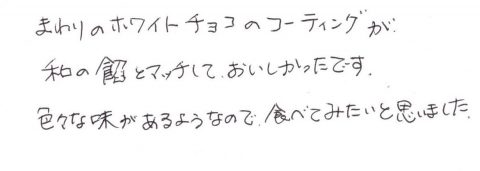 まわりのホワイトチョコのコーティングが
和の餡とマッチして、おいしかったです。
色々な味があるようなので、食べてみたいと思いました。